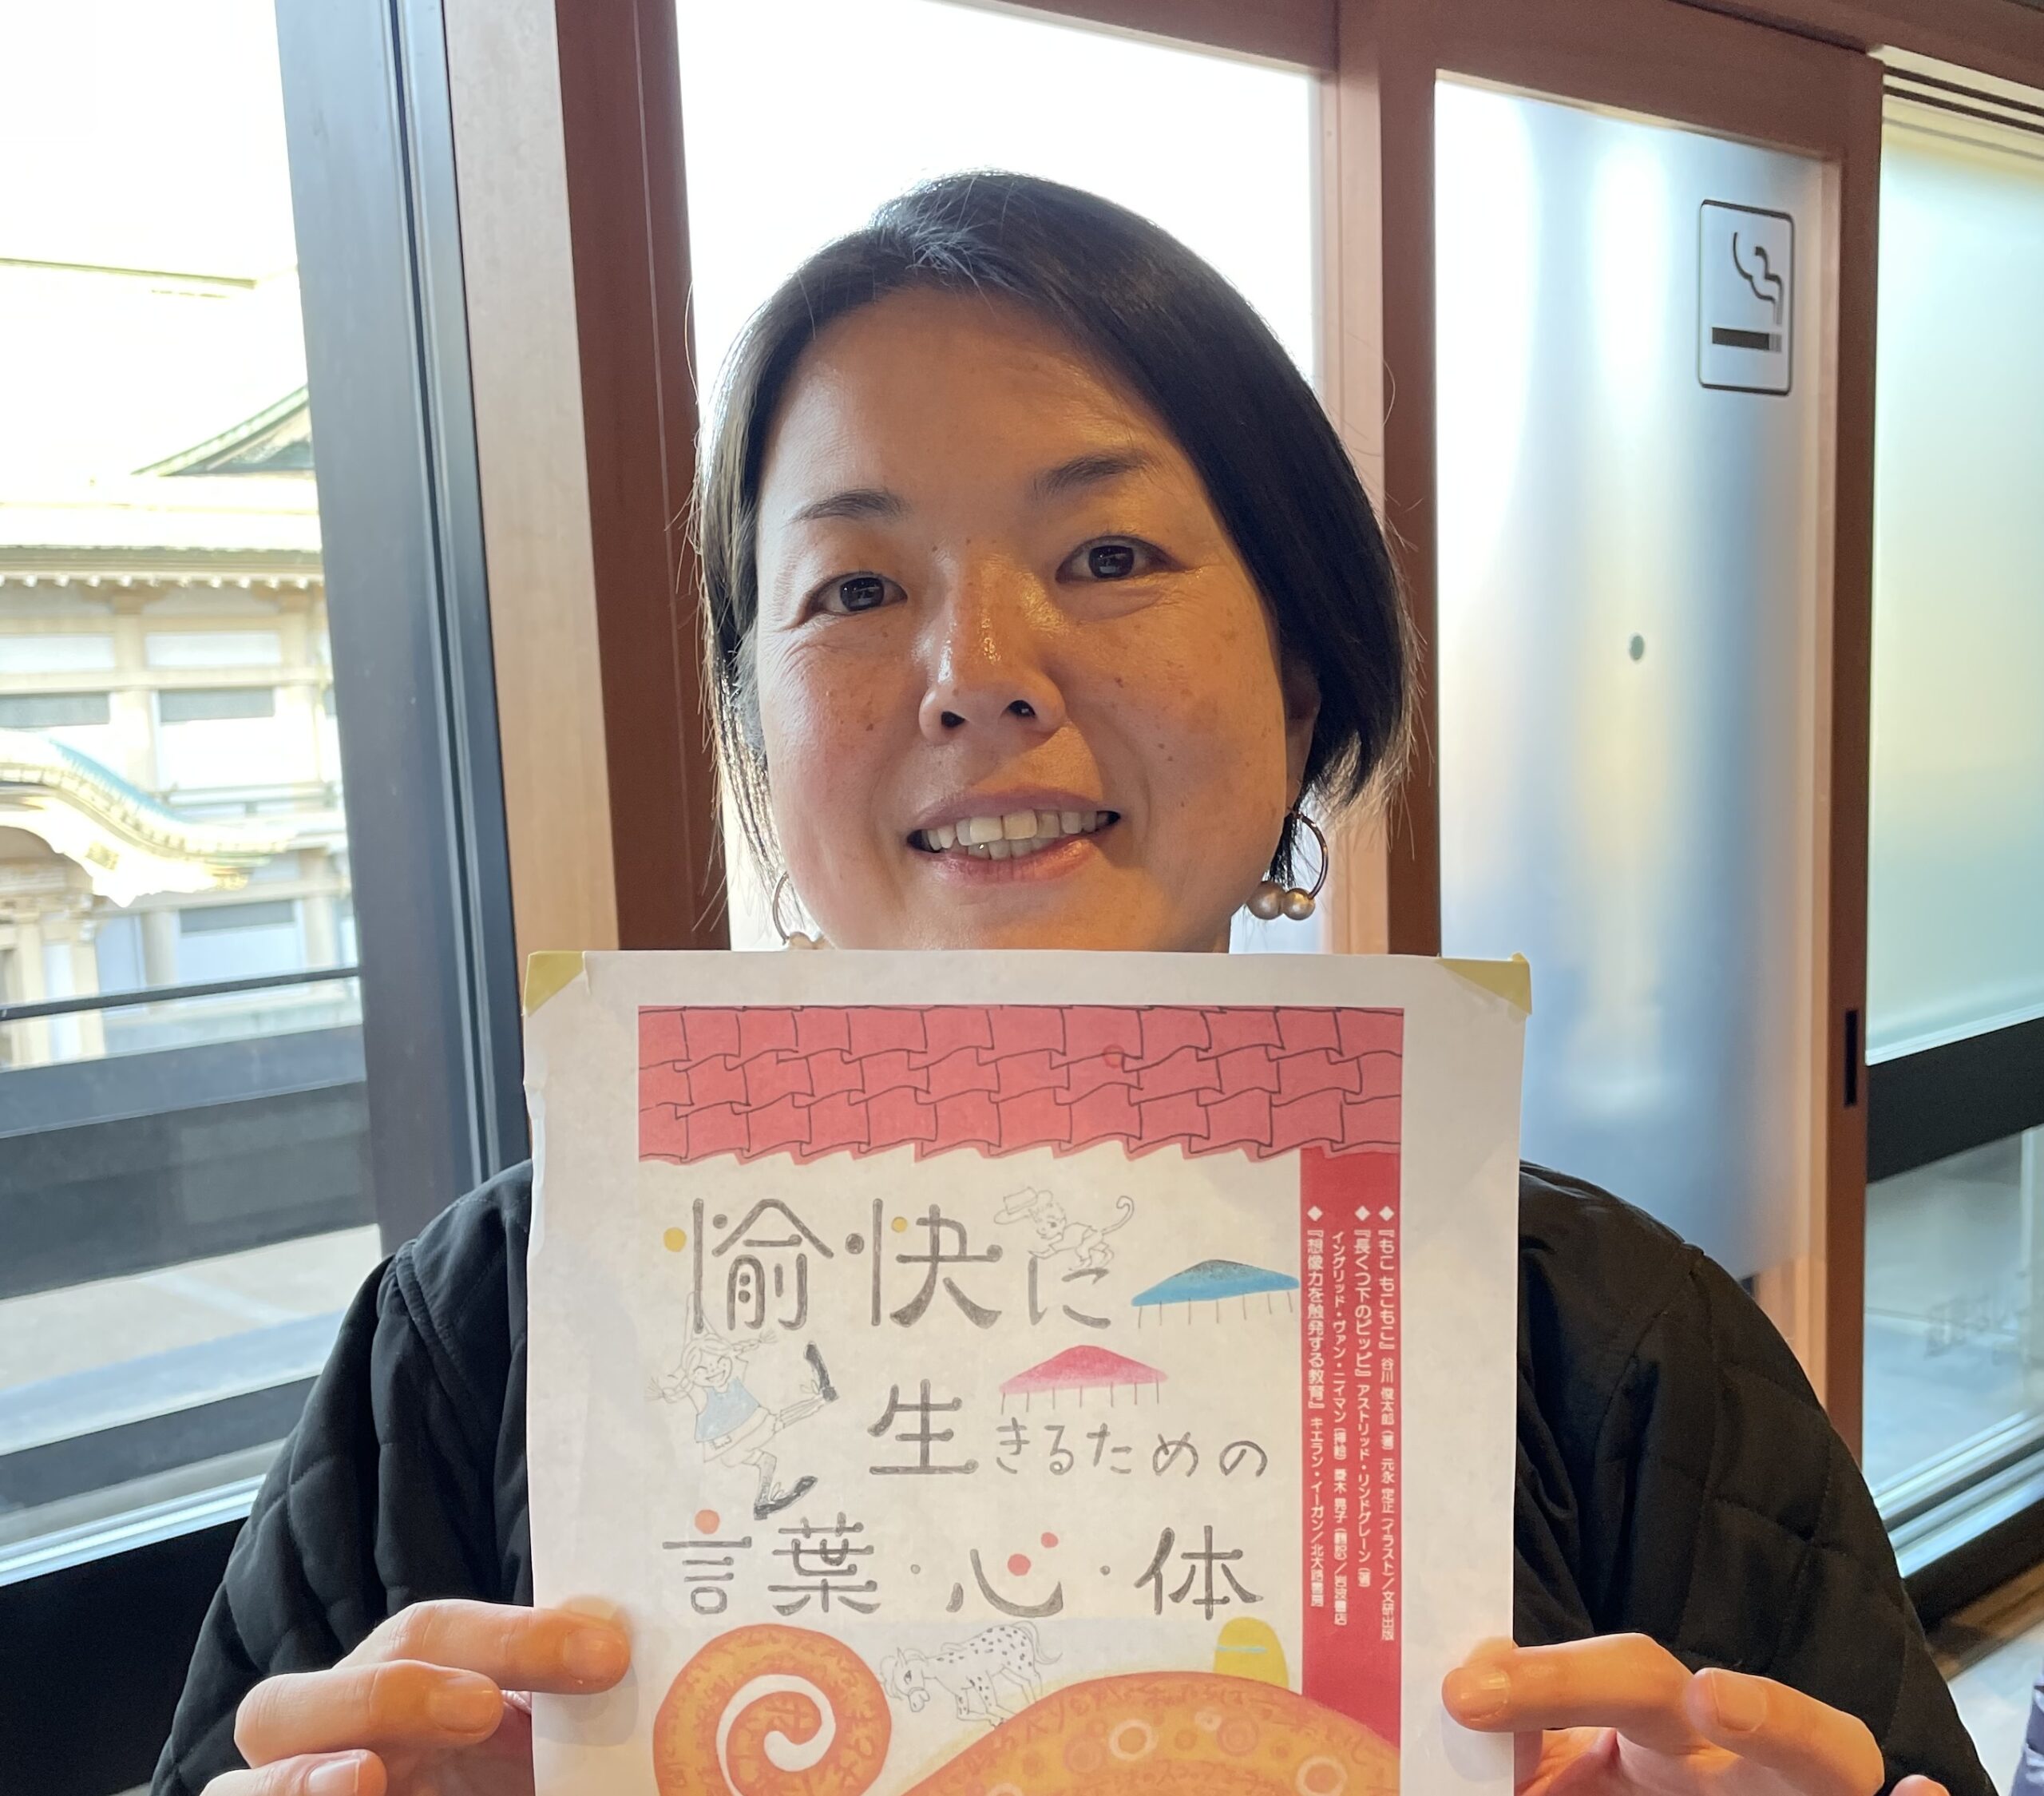 愉快に
生きるための
言葉・心・体
◆『もこ もこもこ』谷川 俊太郎（著）元永 定正（イラスト）／文研出版
◆『長くつ下のピッピ』アストリッド・リンドグレーン（著）
イングリッド・ヴァン・ニイマン（挿絵）菱木 晃子（翻訳）／岩波書店
◆『想像力を触発する教育』キエラン・イーガン／北大路書房